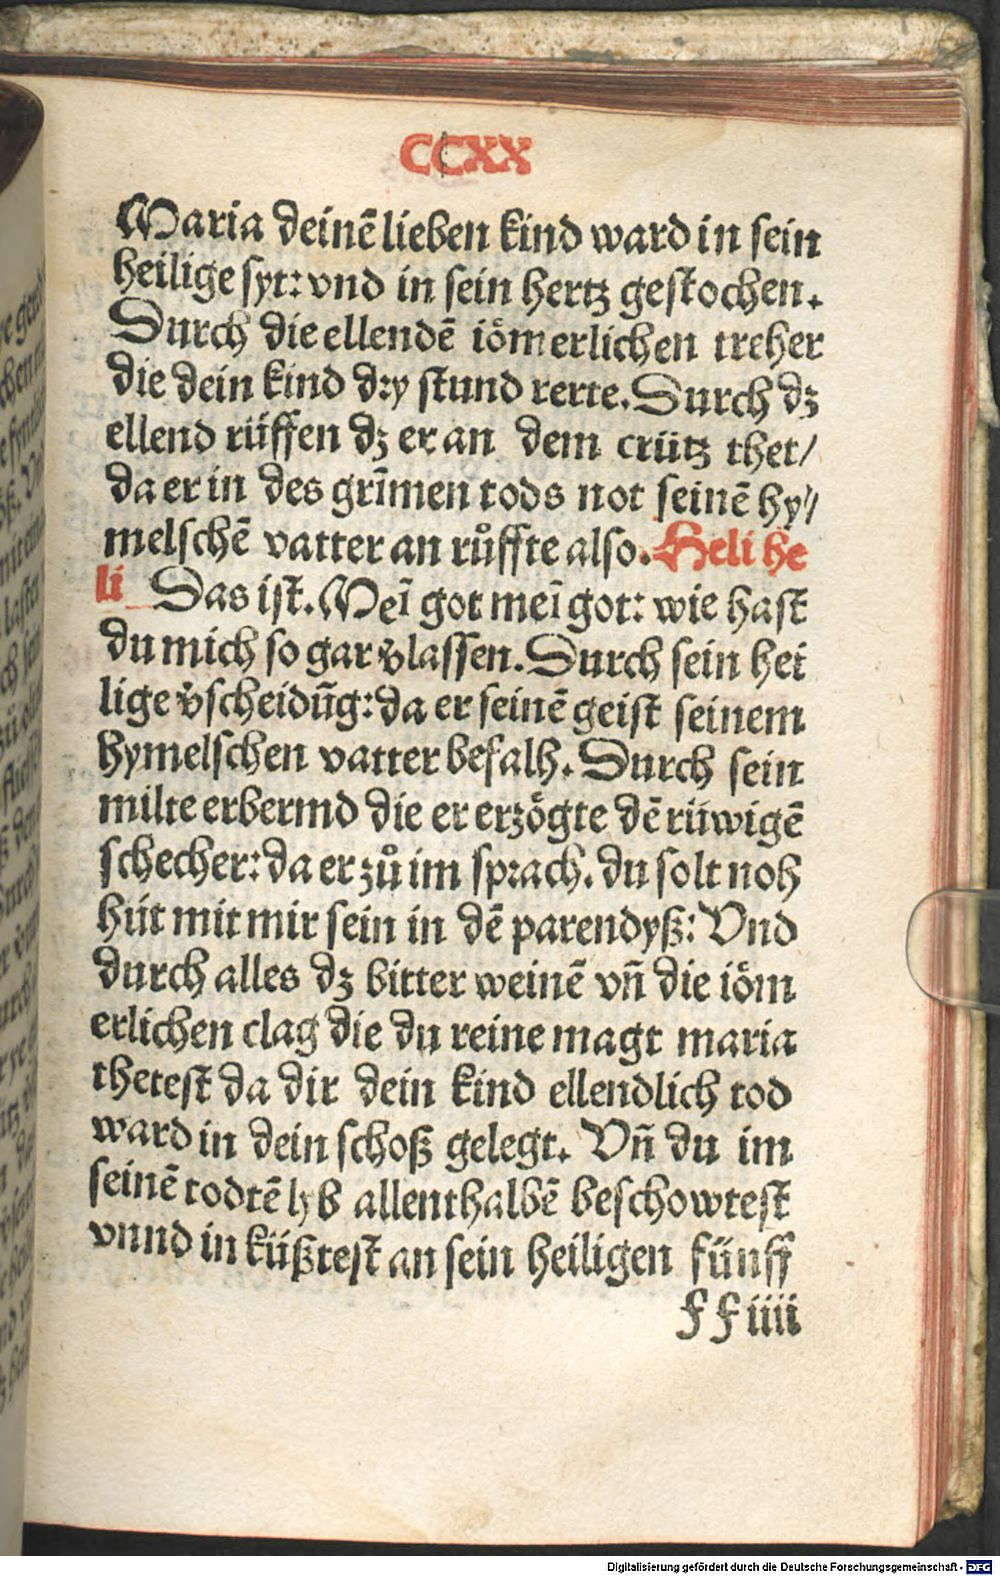 CCXX
Maria deinē lieben kind ward in sein
heilige syt: vnd in sein hertz gestochen.
Durch die ellendē iömerlichen treher
die dein kind dry stund rerte. Durch dz
ellend rüffen dz er an dem crütz thet/
da er in des grīmen tods not seinē hy//
melschē vatter an růffte also. Heli he
li Das ist. Meī got meī got: wie hast
du mich so gar v̄lassen. Durch sein hei
lige v̄scheidūg: da er seinē geist seinem
hymelschen vatter befalh. Durch sein
milte erbermd die er erzögte dē rüwigē
schecher: da er zů im sprach. du solt noh
hüt mit mir sein in dē parendyß: Vnd
durch alles dz bitter weinē vn̄ die iöm
erlichen clag die du reine magt maria
thetest da dir dein kind ellendlich tod
ward in dein schoß gelegt. Vn̄ du im
seinē todtē lyb allenthalbē beschowtest
vnnd in küßtest an sein heiligen fünff
f f iiii
Digitalisierung gefördert durch die Deutsche Forschungsgemeinschaft - DFG